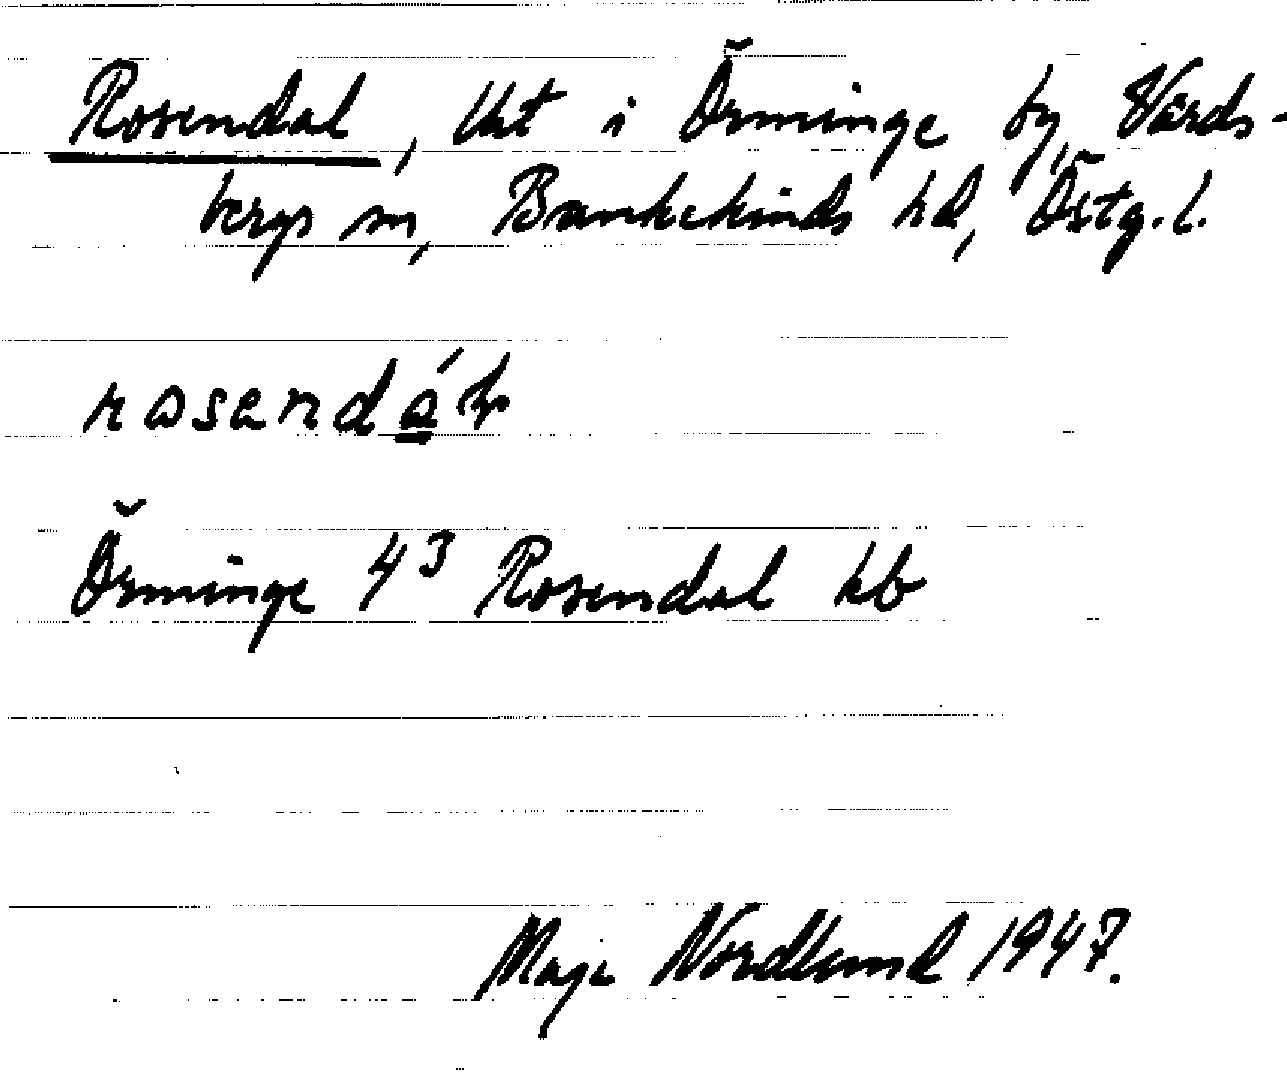 Rosendal, Uht i Örminge by, Vårds-
bergs sn, Bankekinds hd, Östg. l.
rosendá
Örminge 4³ Rosendal kb
Maja Nordlund 1947.